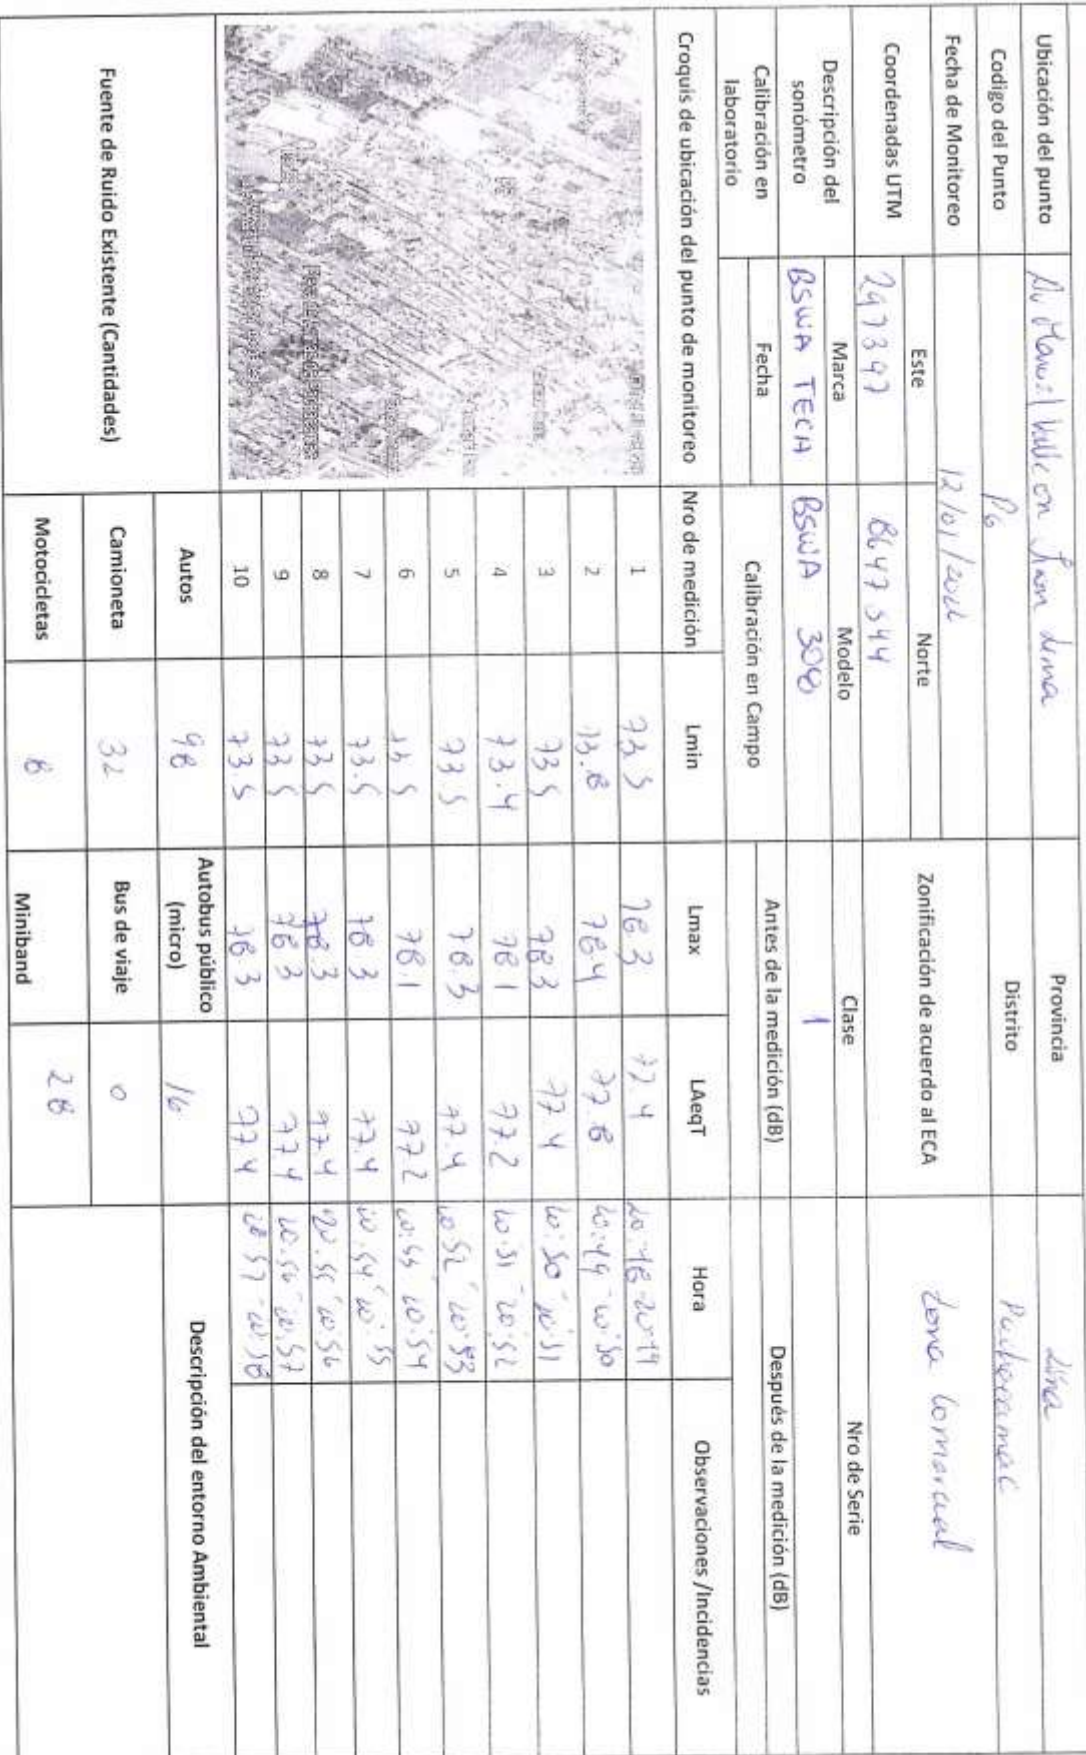 Ubicación del punto Av Manuel Valle con Juan Lima Provincia Lima
Codigo del Punto P6 Distrito Pachacamac
Fecha de Monitoreo 12/01/
Coordenadas UTM Este Norte Zonificación de acuerdo al ECA Zona Comercial
297397 8647 544
Descripción del sonómetro Marca Modelo Clase Nro de Serie
BSWA TECH BSWA 308 1
Calibración en laboratorio Fecha Calibración en Campo Antes de la medición (dB) Después de la medición (dB)
Croquis de ubicación del punto de monitoreo Nro de medición Lmin Lmax LAeqT Hora Observaciones /Incidencias
1 73 5 78 3 77 4 20:48-20:49
2 73.8 78 4 77.8 20:49-20:50
3 73 5 78 3 77 4 20:50-20:51
4 73.4 78 1 77 2 20:51-20:52
5 73 5 78.3 77.4 20 52-20:53
6 73 5 78.1 77 2 20:53 20:54
7 73.5 78 3 77.4 20:54-20:55
8 73 5 78.3 77.4 20:55-20 56
9 73 5 78 3 77 4 20:56-20:57
10 73.5 78 3 77 4 20 57-20:58
Fuente de Ruido Existente (Cantidades) Autos 98 Autobus público (micro) 16 Descripción del entorno Ambiental
Camioneta 32 Bus de viaje 0
Motocicletas 8 Miniband 28